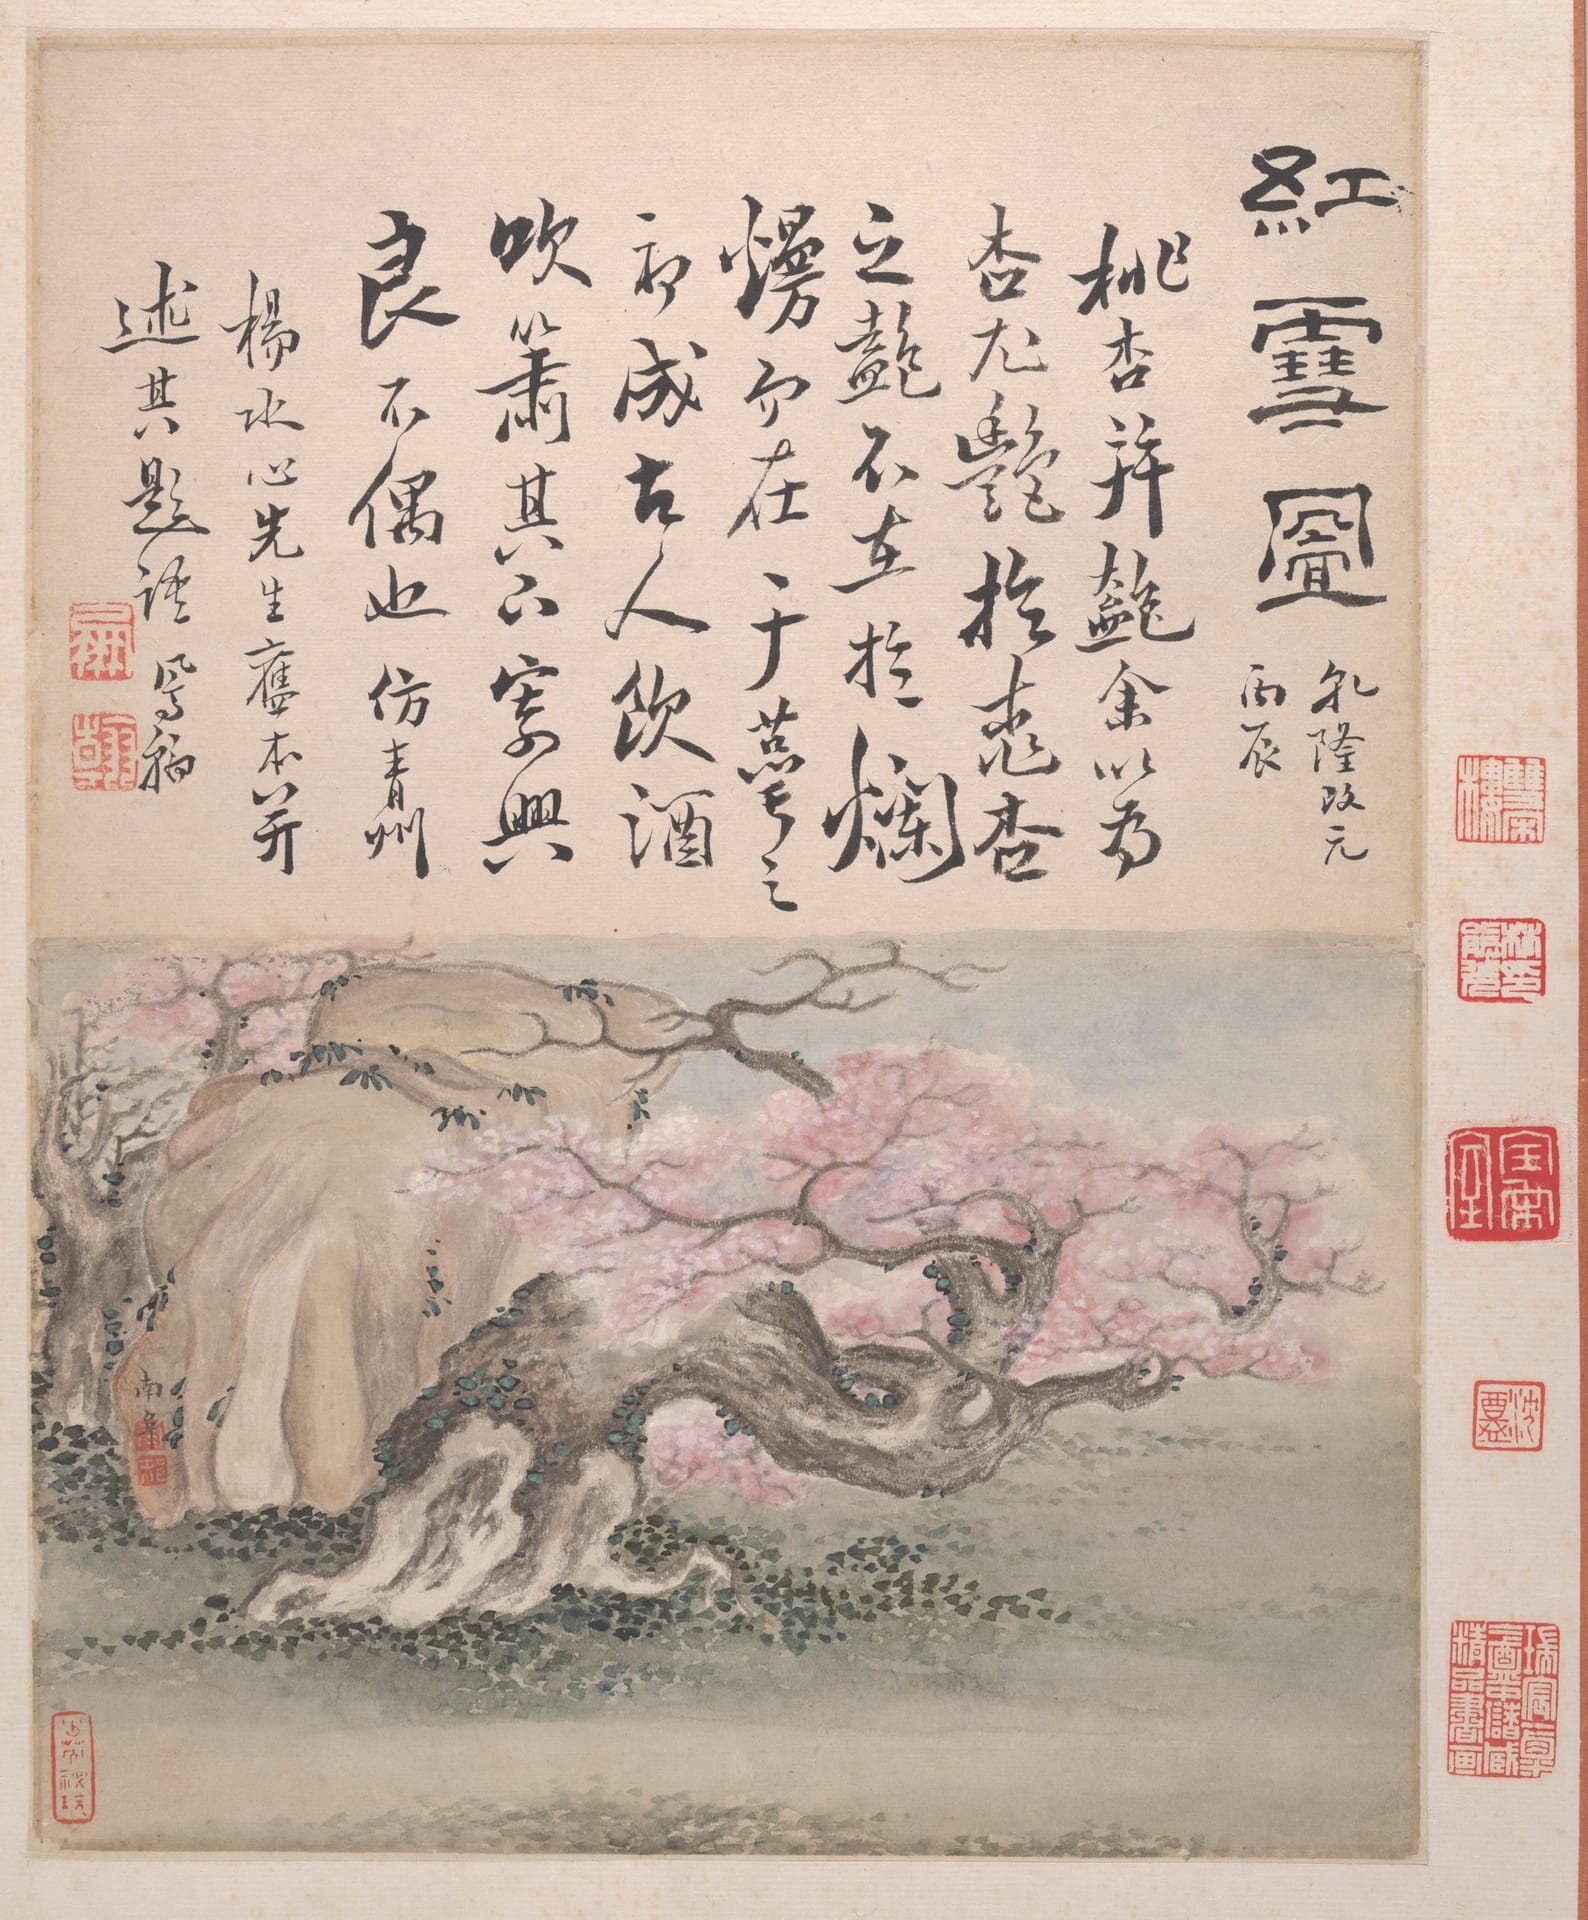 紅雪圖
乾隆改元
丙辰
桃杏并艶余以為
杏尤艷於桃杏
之艶不在於爛
熳而在于蓓蕾之
初成古人飲酒
吹簫其下寄興
良不偶也仿青州
楊水心先生舊本并
述其題語鳳翰
南阜